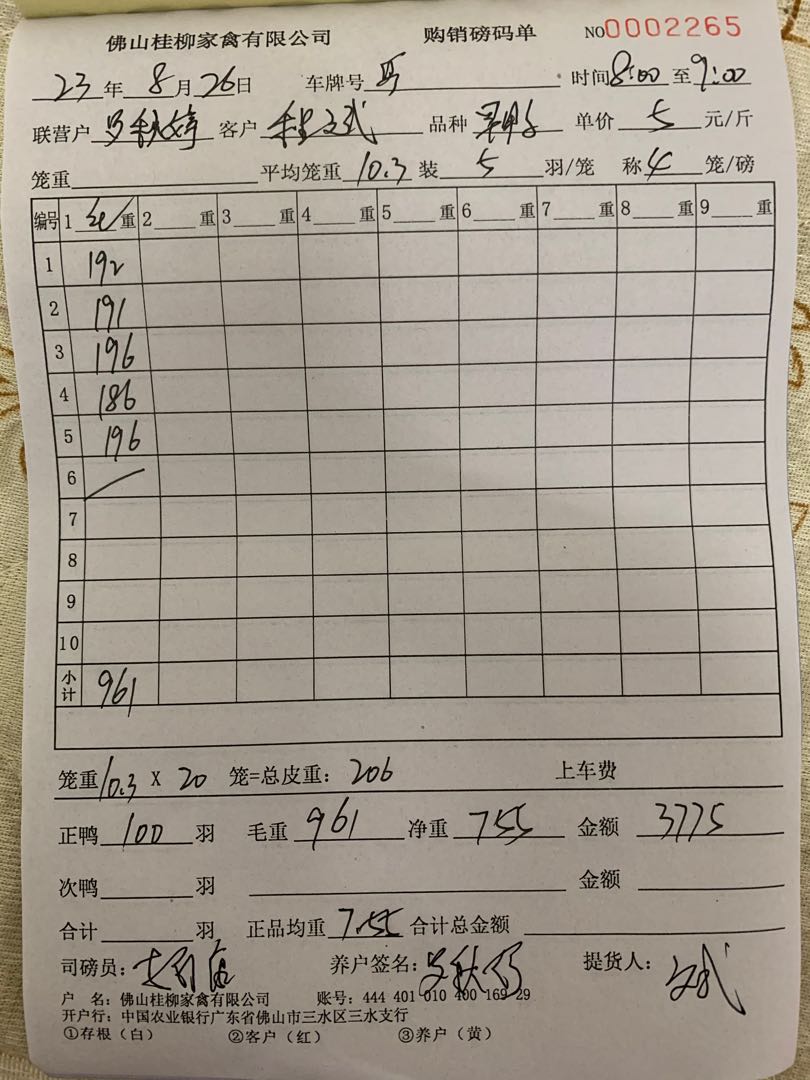 佛山桂柳家禽有限公司 购销磅码单 NO0002265
23年8月26日 车牌号 时间8:00至9:00
联营户 罗秋婷 客户 程文武 品种 单价 5 元/斤
笼重 平均笼重 10.3 装 5 羽/笼 称 4 笼/磅
编号 1 重 2 重 3 重 4 重 5 重 6 重 7 重 8 重 9 重
1 192
2 191
3 196
4 186
5 196
6
7
8
9
10
小计 961
笼重 10.3 X 20 笼=总皮重: 206 上车费
正鸭 100 羽 毛重 961 净重 755 金额 3775
次鸭 羽 金额
合计 羽 正品均重 7.55 合计总金额
司磅员: 养户签名: 提货人: 文武
户 名: 佛山桂柳家禽有限公司 账号: 444 401 010 400 169 29
开户行: 中国农业银行广东省佛山市三水区三水支行
①存根（白） ②客户（红） ③养户（黄）